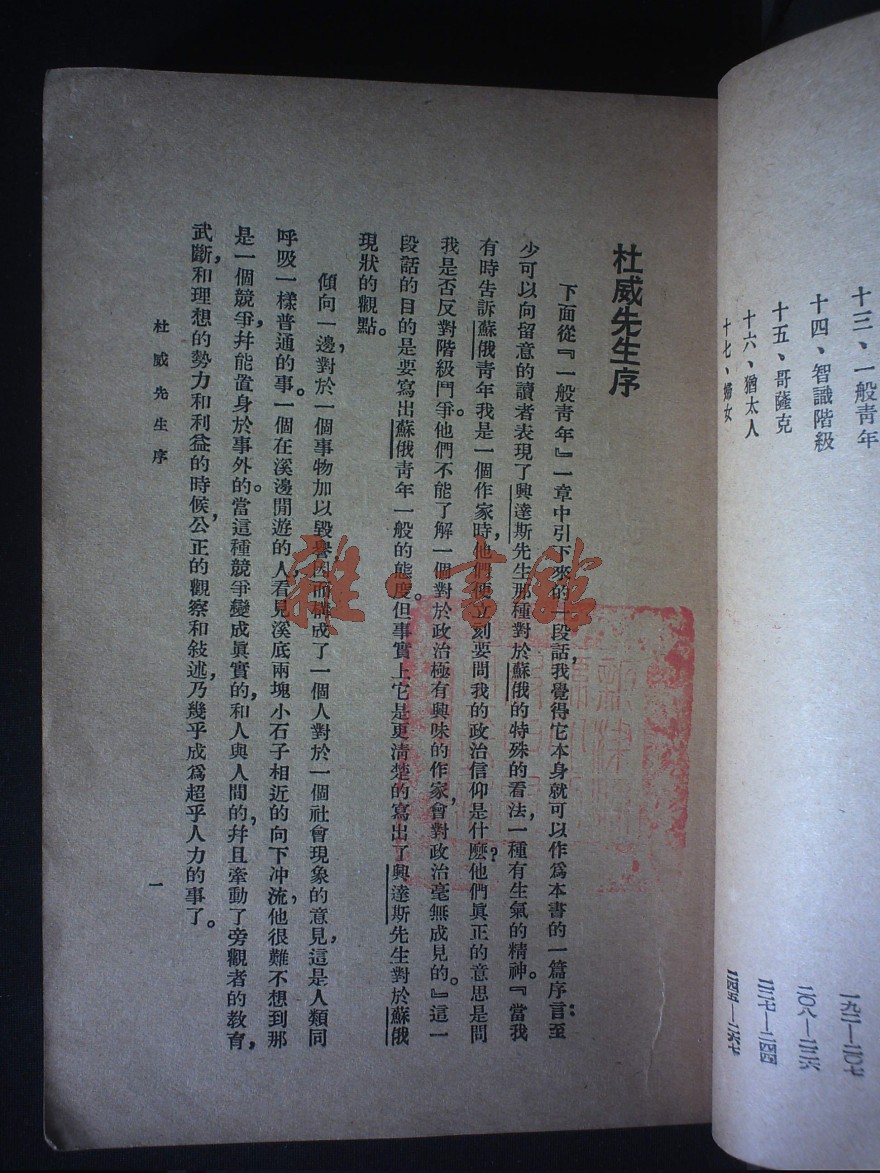 十三、一般青年 一九二—二〇七
十四、智識階級 二〇八—二三六
十五、哥薩克
十六、猶太人 二三七—二四四
十七、婦女 二四五—二六七
杜威先生序
下面從『一般青年』一章中引下來的一段話，我覺得它本身就可以作爲本書的一篇序言：至
少可以向留意的讀者表現了興達斯先生那種對於蘇俄的特殊的看法，一種有生氣的精神。『當我
有時告訴蘇俄青年我是一個作家時，他們便立刻要問我的政治信仰是什麼？他們眞正的意思是問
我是否反對階級鬥爭。他們不能了解一個對於政治極有興味的作家，會對政治毫無成見的。』這一
段話的目的是要寫出蘇俄青年一般的態度。但事實上它是更清楚的寫出了興達斯先生對於蘇俄
現狀的觀點。
傾向一邊，對於一個事物加以毀譽，因而構成了一個人對於一個社會現象的意見，這是人類同
呼吸一樣普通的事。一個在溪邊閒遊的人，看見溪底兩塊小石子相近的向下冲流，他很難不想到那
是一個競爭，幷能置身於事外的。當這種競爭變成眞實的，和人與人間的，幷且牽動了旁觀者的教育，
武斷，和理想的勢力和利益的時候，公正的觀察和敍述，乃幾乎成爲超乎人力的事了。
杜威先生序
一
雜·書館